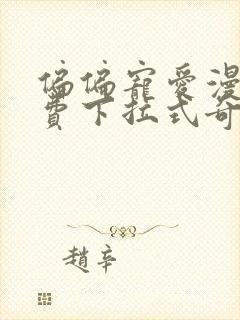 偏偏寵愛漫
費下拉式奇
趙辛